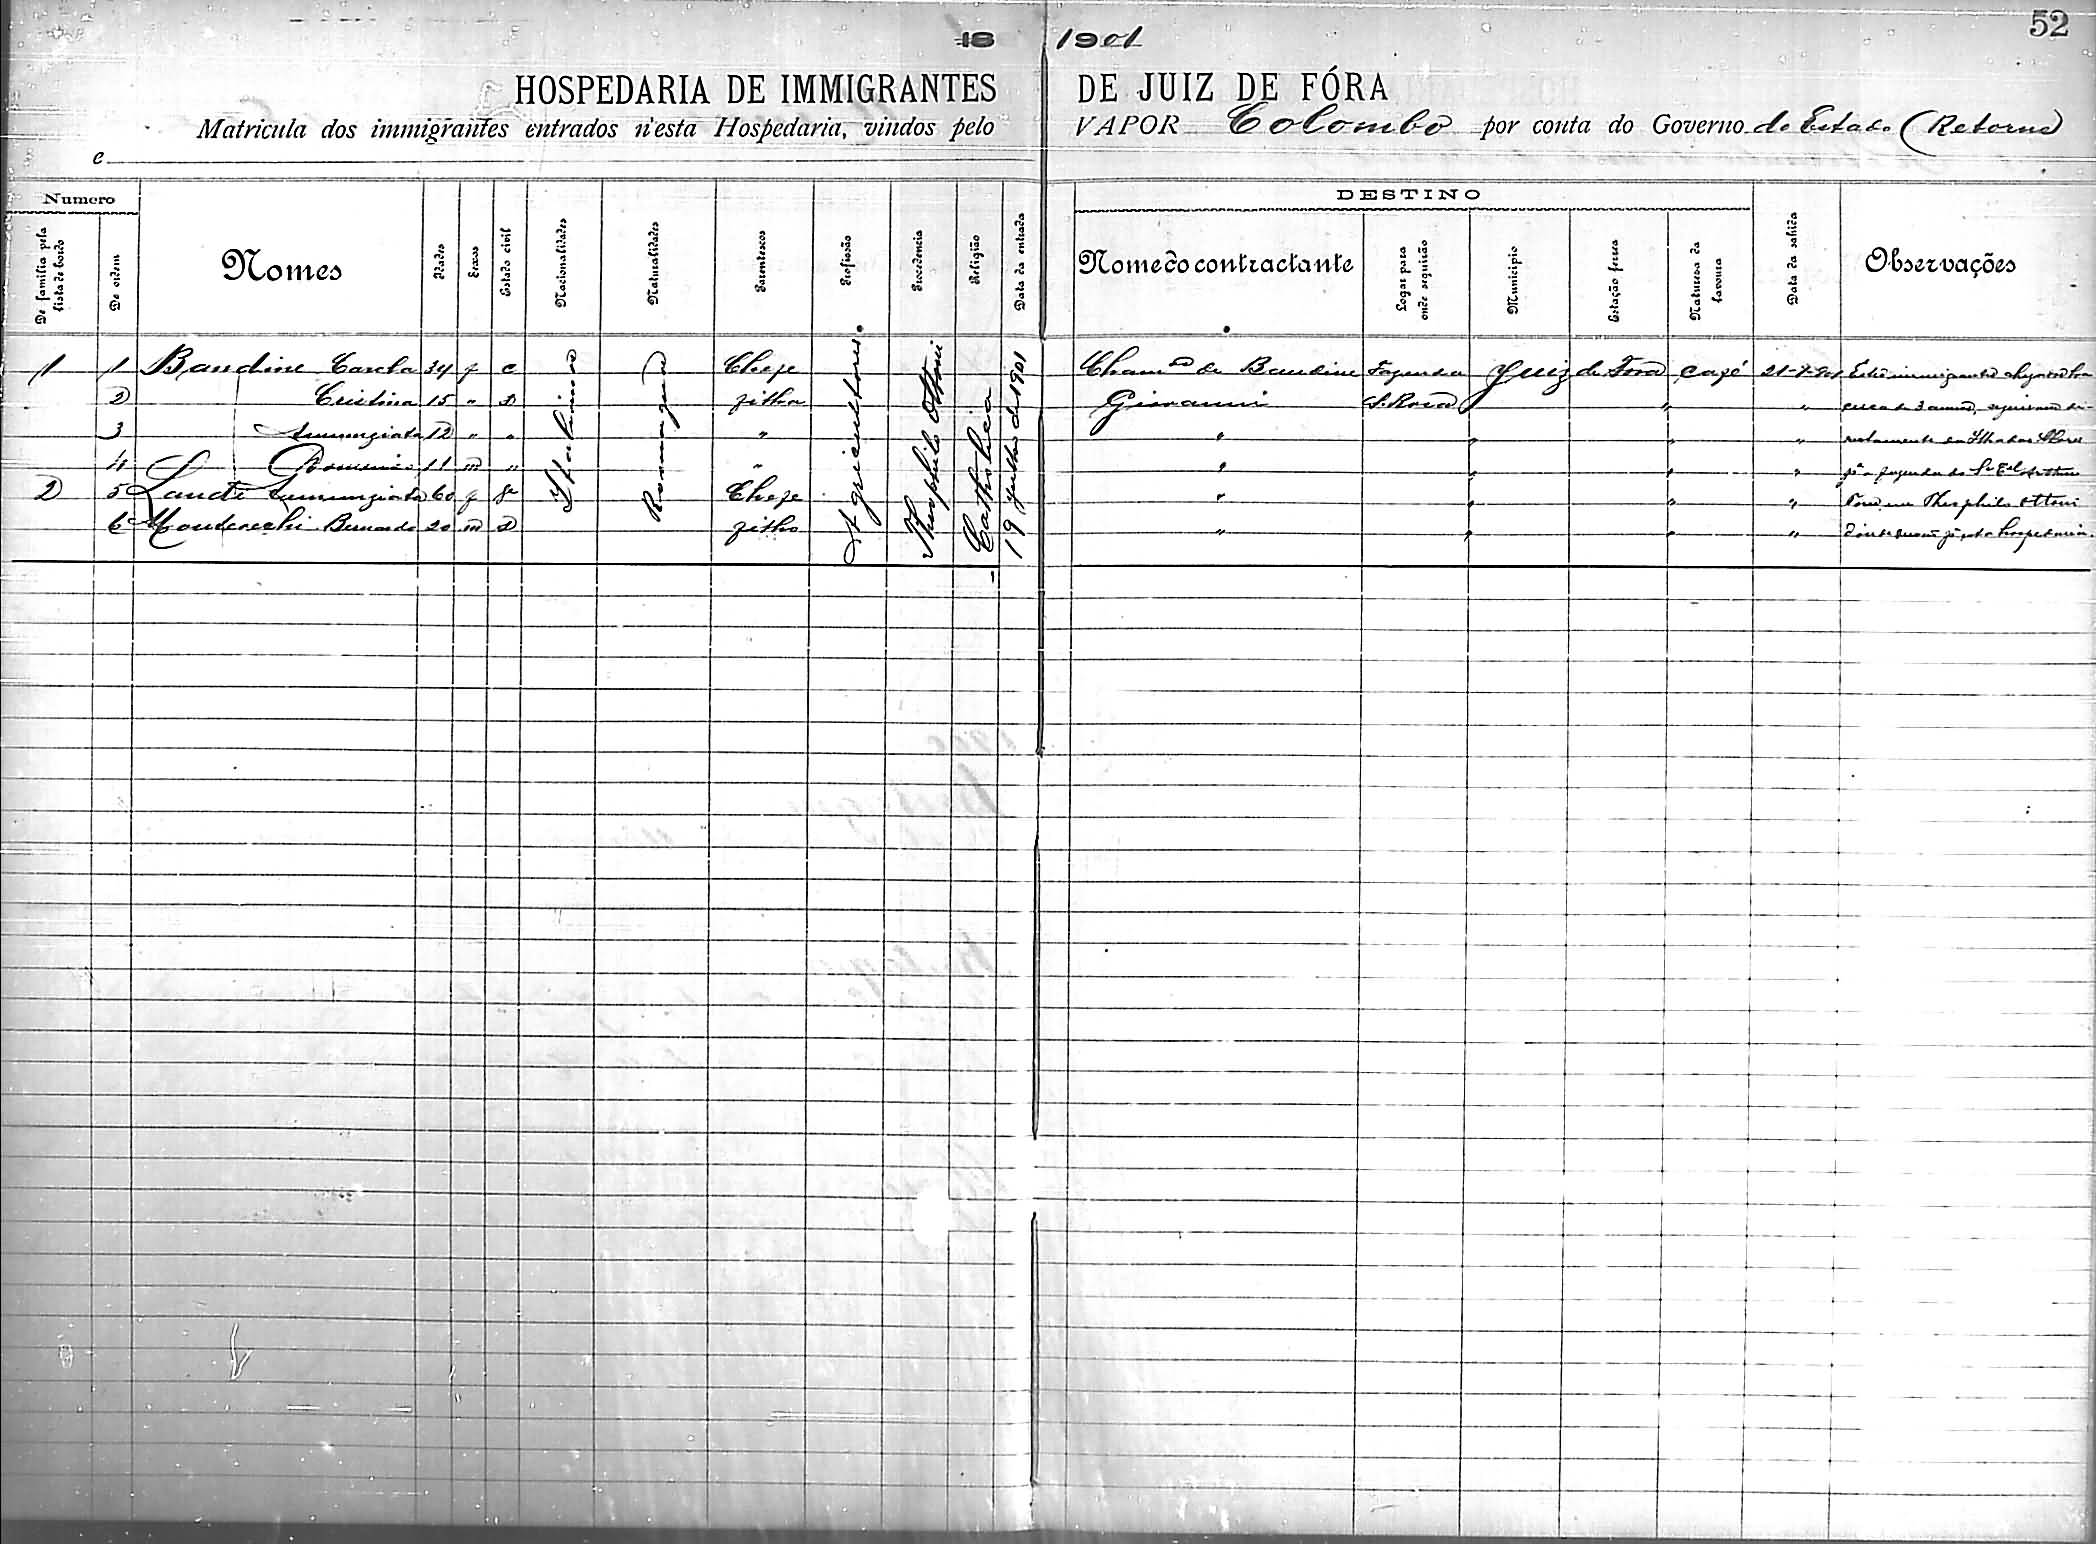 52
18 1901
HOSPEDARIA DE IMMIGRANTES DE JUIZ DE FÓRA
Matricula dos immigrantes entrados n'esta Hospedaria, vindos pelo VAPOR Colombo por conta do Governo do Estado (Retorno)
e
Numero
DESTINO
De familia pela lista de bordo
De ordem
Nomes
Idades
Sexos
Estado civil
Nacionalidades
Naturalidades
Parentescos
Profissão
Procedencia
Religião
Data da entrada
Nome do contractante
Logar para onde seguirão
Municipio
Estação ferrea
Natureza da lavoura
Data da sahida
Observações
1 1 Bandine Carola 34 f c Chefe Cham.do de Bandine Fazenda Juiz de Fora café 21-7-901 Estes immigrantes
2 Cristina 15 " S filha Giovanni S. Rosa " " seguiram di-
3 Annunziata 12 " " " " " " " rectamente da Ilha das Flores
4 11 m " " " " " " pª a fazenda do
2 5 Annunziata 60 f Chefe " " " " Theophilo Ottoni
6 Bernardo 20 m S filho " " " " Hospedaria.
Italiana
Agricultores
Theophilo Ottoni
Catholica
19 Julho de 1901